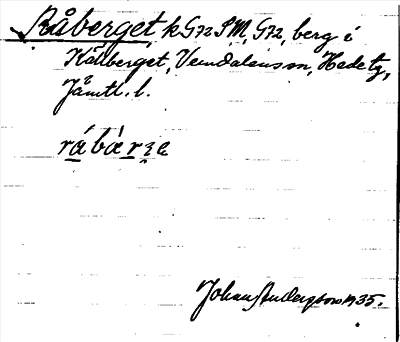 Råberget k G72 SM, G72, berg i
Kålberget, Vemdalens sn, Hede tg,
Jämtl. l.
rábàrʒɐ
Johan Andersson 1935.